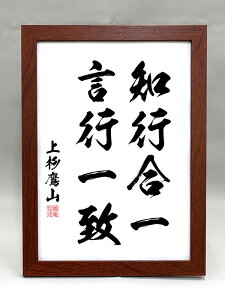 知行合一
言行一致
上杉鷹山